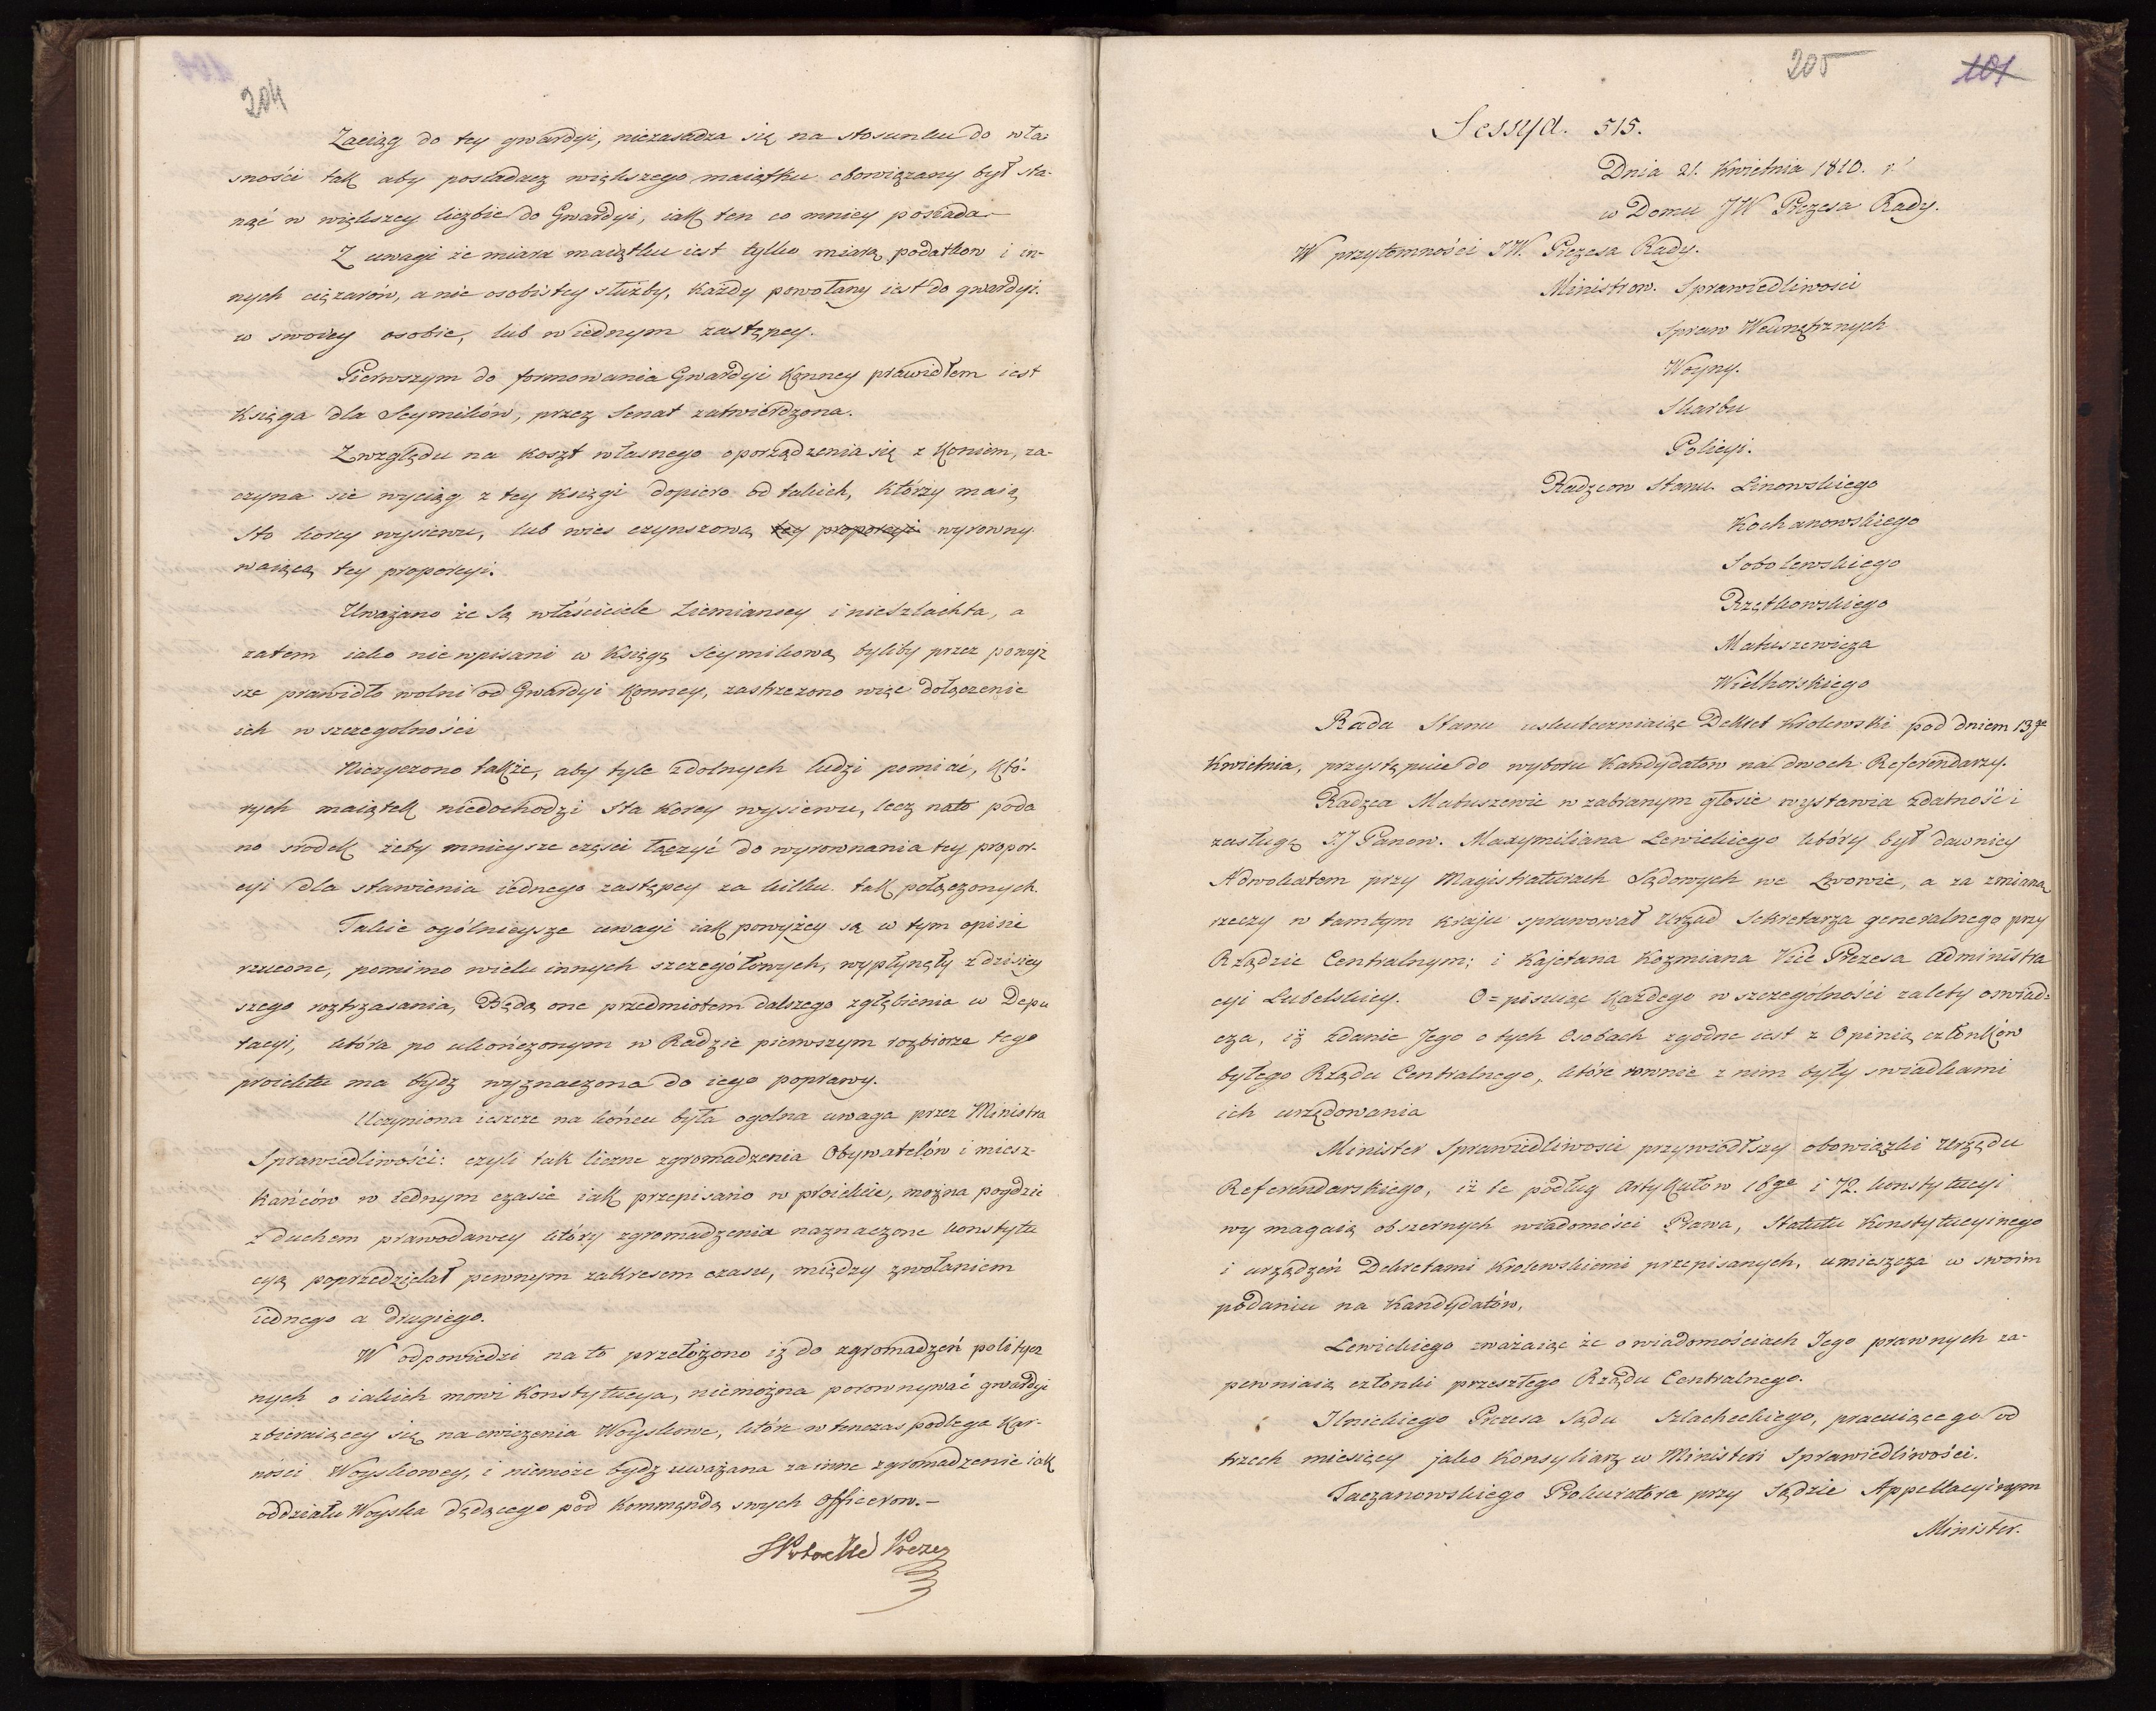 204
Zaciąg do tey gwardyi, niezasadza się na stosunku do wła-
sności tak aby posiadacz większego maiątku obowiązany był sta-
nąć w większey liczbie do Gwardyi, iak ten co mniey posiada
Z uwagi że miara maiątku iest tylko miarą podatkow i in-
nych ciężarów, a nie osobistey służby, każdy powołany iest do gwardyi.
w swoiey osobie, lub w iednym zastępcy.
Pierwszym do formowania Gwardyi Konney prawidłem iest
Księga dla Seymików, przez Senat zatwierdzona.
Z względu na koszt własnego oporządzenia się z Koniem, za-
czyna sie wyciąg z tey Księgi dopiero od takich, którzy maią
sto korcy wysiewu, lub wies czynszową tey proporcyi wyrowny
waiącą tey proporcyi.
Uważano że są właściciele Ziemianscy i nieszlachta, a
zatem iako nie wpisani w Księgę Seymikową byliby przez powyż
sze prawidło wolni od Gwardyi Konney, zastrzeżono więc dołączenie
ich w szczegolności
Nieżyczono także, aby tyle zdolnych ludzi pomiiać, któ-
rych maiątek niedochodzi sta korcy wysiewu, lecz na to poda
no srodek żeby mnieysze części łączyć do wyrownania tey propor-
cyi dla stawienia iednego zastępcy za kilku tak połączonych.
Takie ogólnieysze uwagi iak powyżey są w tym opisie
rzucone, pomimo wielu innych szczegółowych, wypłynęły z dzisiey
szego roztrzasania, Będą one przedmiotem dalszego zgłębienia w Depu
tacyi, która po ukończonym w Radzie pierwszym rozbiorze tego
proiektu ma bydz wyznaczona do iego poprawy.
Uczyniona ieszcze na końcu była ogolna uwaga przez Ministra
Sprawiedliwości: czyli tak liczne zgromadzenia Obywatelów i miesz-
kańców w iednym czasie iak przepisano w proiekcie, można pogdzić
z duchem prawodawcy który zgromadzenia naznaczone konstytu
cyą poprzedzielał pewnym zakresem czasu, między zwołaniem
iednego a drugiego.
W odpowiedzi na to przełożono iż do zgromadzeń politycz
nych o iakich mowi Konstytucya, niemożna porownywać gwardyi
zbieraiącey się na cwiczenia Woyskowe, które wtenczas podlega Kar-
ności Woyskowey, i niemoże bydz uważana za inne zgromadzenie iak
oddziału Woyska będącego pod Kommendą swych Officerow.
Prezes
205
101
Sessya. 515.
Dnia 21. Kwietnia 1810. r.
w Domu JW Prezesa Rady.
W przytomności JW. Prezesa Rady.
Ministrow. Sprawiedliwosci
Spraw Wewnętrznych
Woyny.
Skarbu
Policyi.
Radzcow Stanu Linowskiego
Kochanowskiego
Sobolewskiego
Rzętkowskiego
Matuszewicza
Wielhorskiego
Rada Stanu uskuteczniaiąc Dekret Krolewski pod dniem 13go
Kwietnia, przystępuie do wyboru Kandydatów na dwoch Referendarzy.
Radzca Matuszewic w zabranym głosie wystawia zdatność i
zasługę JJ Panow. Maxymiliana Lewickiego który był dawniey
Adwokatem przy Magistraturach Sądowych we Lwowie, a za zmianą
rzeczy w tamtym kraju sprawował Urząd Sekretarza generalnego przy
Rządzie Centralnym; i Kajetana Kozmiana Vice Prezesa Administra
cyi Lubelskiey. O=pisuiąc Każdego w szczegolności zalety oswiad-
cza, iż zdanie Jego o tych Osobach zgodne iest z Opinią członków
byłego Rządu Centralnego, które rownie z nim były swiadkami
ich urzędowania
Minister Sprawiedliwosci przywiodłszy obowiązki Urzędu
Referendarskiego, iż te podług Artykułów 16go i 72. konstytucyi
wymagaią obszernych wiadomości Prawa, Statutu Konstytucyinego
i urządzeń Dekretami Krolewskiemi przepisanych, umieszcza w swoim
podaniu na Kandydatów,
Lewickiego zważaiąc że o wiadomościach Jego prawnych za-
pewniaią członki przeszłego Rządu Centralnego.
Ilnickiego Prezesa Sądu Szlacheckiego, pracuiącego od
trzech miesięcy jako Konsyliarz w Ministeri Sprawiedliwości.
Taczanowskiego Prokuratora przy Sądzie Appellacyinym
Minister.